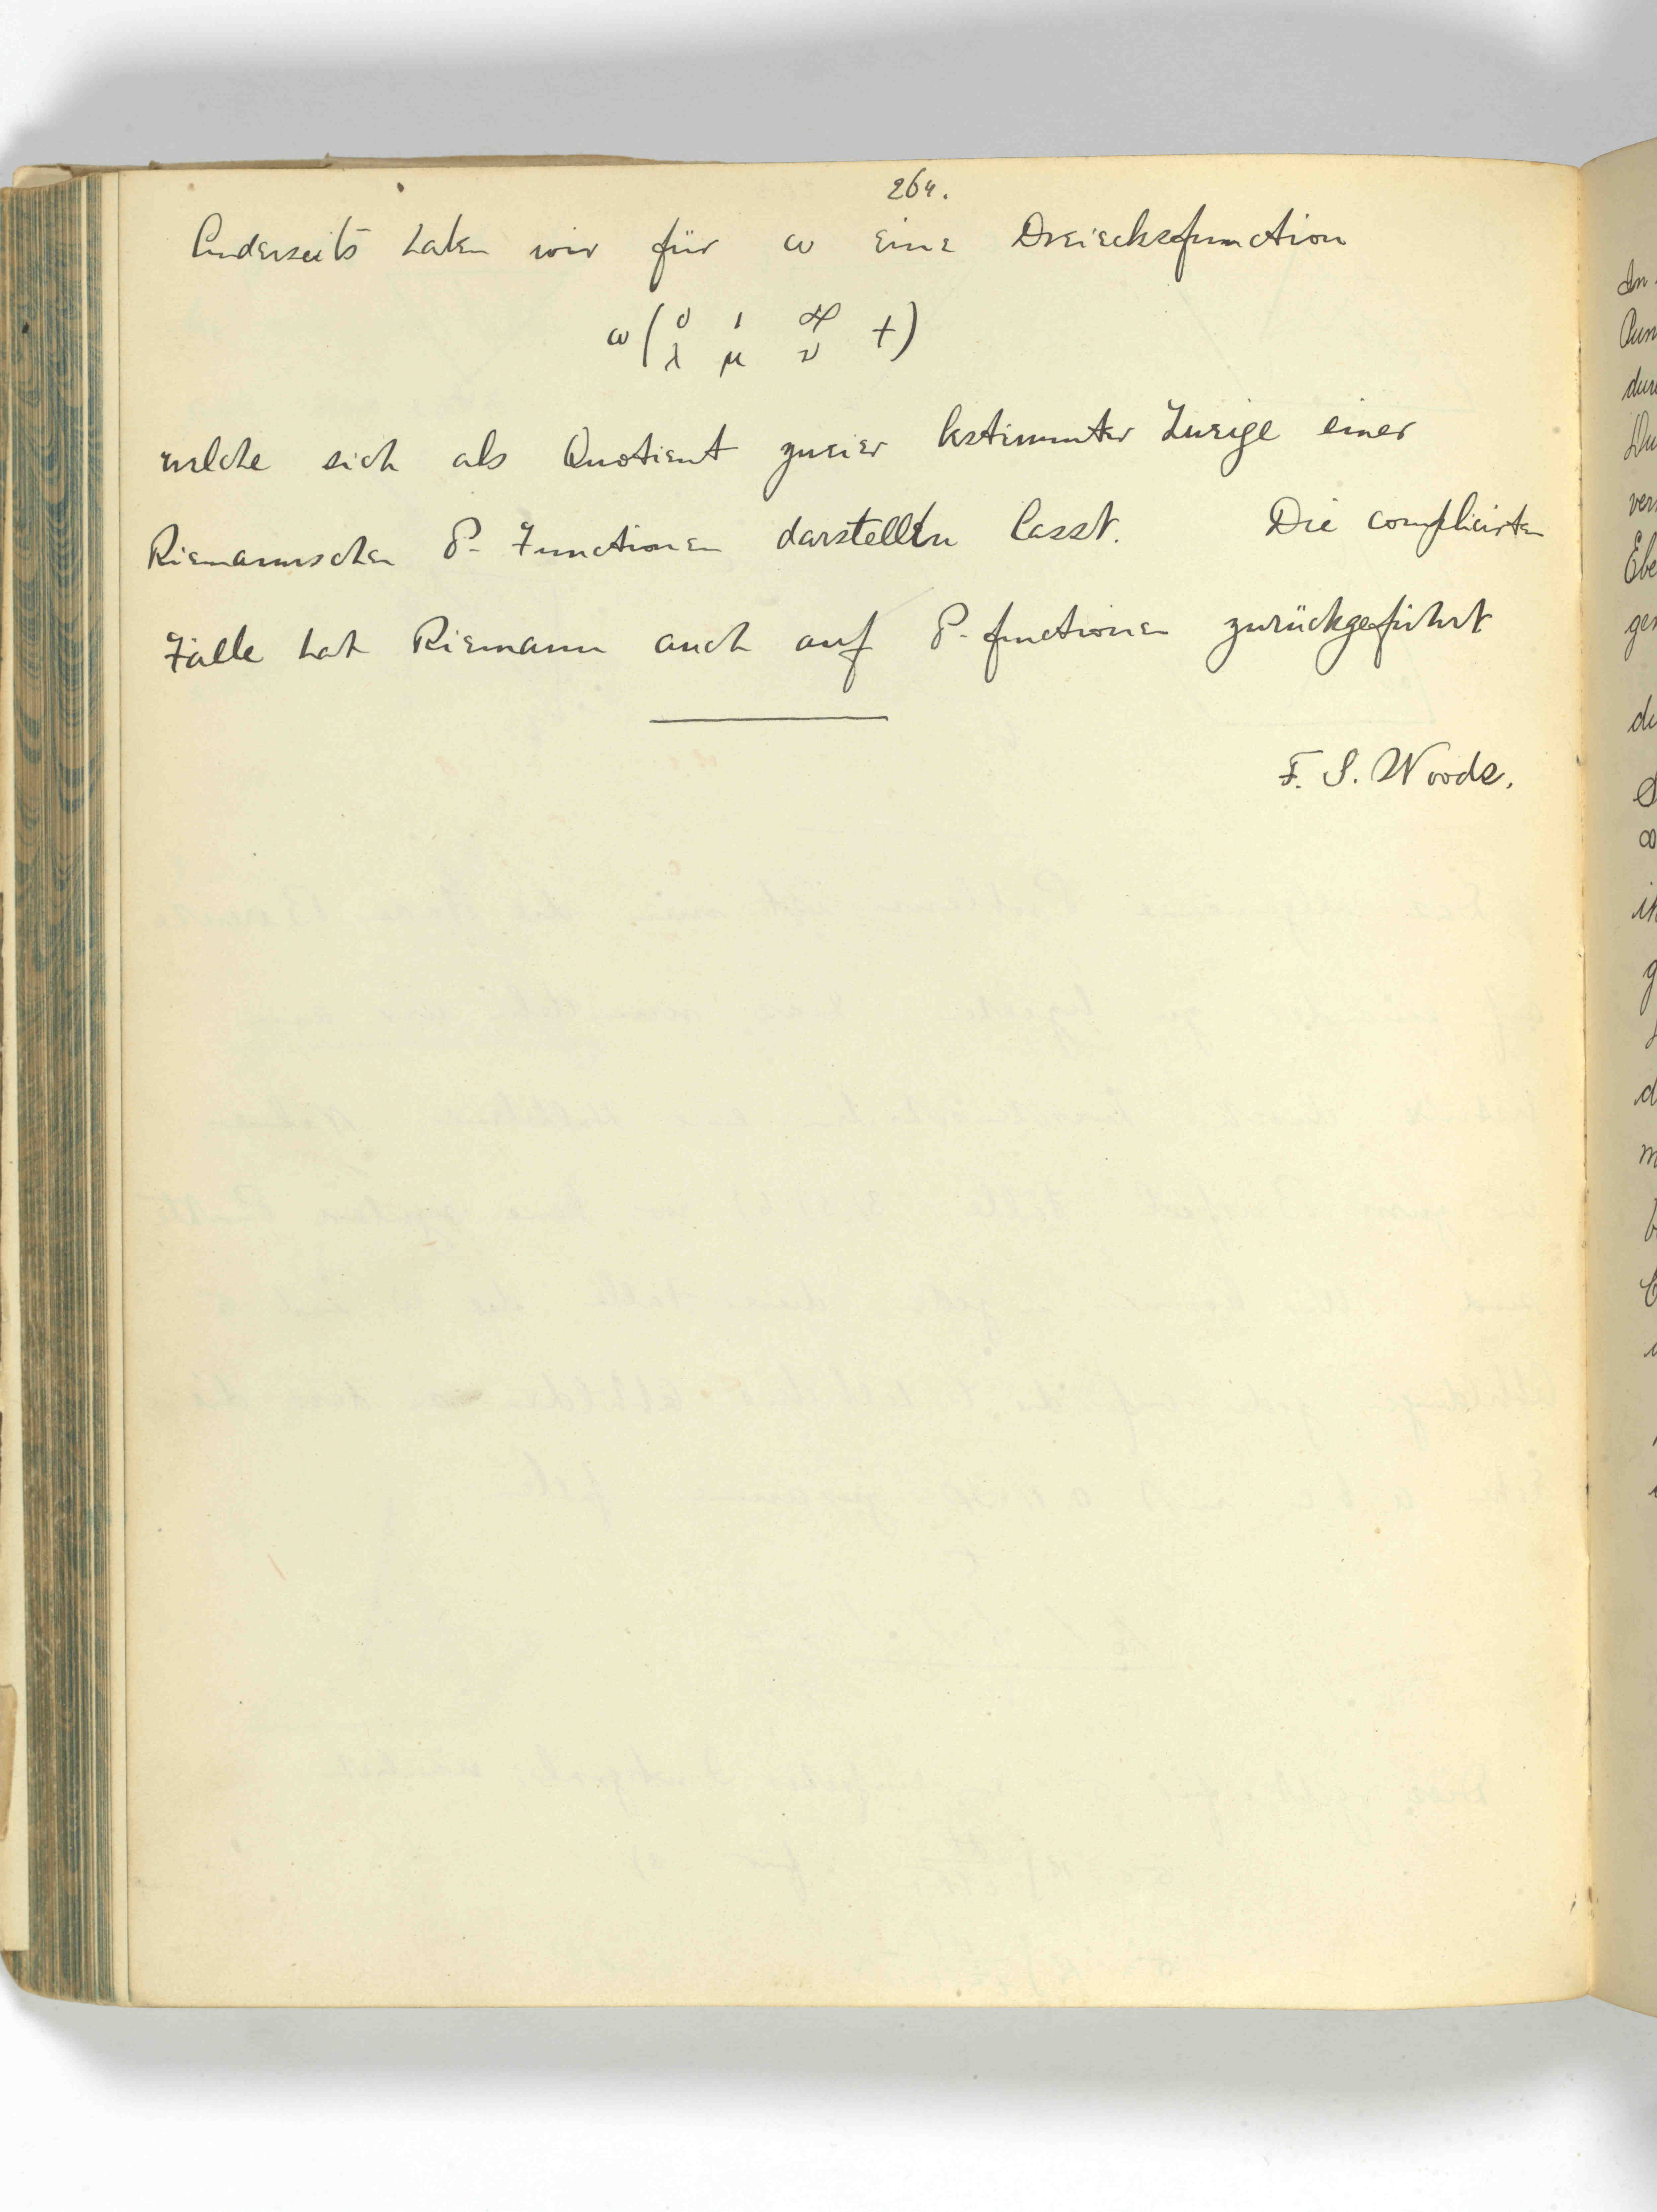 264.
Anderseits haben wir für ω eine Dreiecksfunction
ω ( 0 1 ∞ t )
λ μ ν
welche sich als Quotient zweier bestimmter Zweige einer
Riemannschen P- Functionen darstellen lasst. Die complicirten
Fälle hat Riemann auch auf P-functionen zurückgeführt
F. S. Woods.